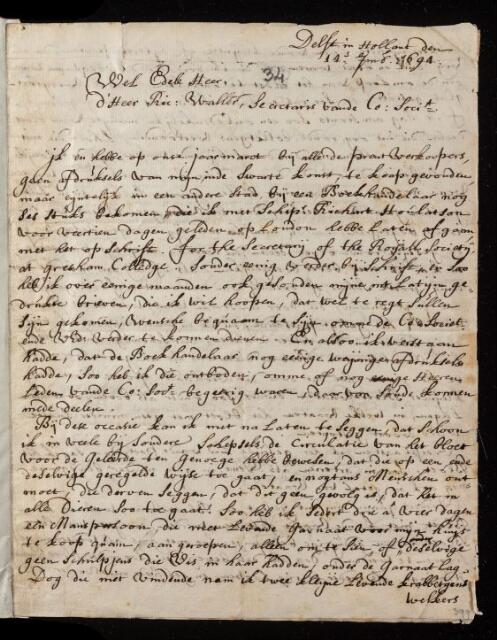 Delft in Hollant den
14.e 7mb. 1694.
34
Wel Edele Heer.
d'Heer Ric: Waller, Secretaris vande Co: Societ.
Ik en hebbe op onse jaarmarct bij alle de prent verkoopers,
geen afdruksels van mijn inde swarte konst, te koop gevonden
maar eijntelijk in een andere stad, bij een Boekhandelaar nog
ses stuks bekomen, die ik met Schipr. Richart Houlatson
voor veertien dagen gelden, op London hebbe laten afgaan
met het op schrift. for the Secretary of the Royall Society
at gresham Colledge. Sonder eenig verder bij Schrift, en Soo
heb ik over eenige maanden ook gesonden mijne int Latijn ge-
drukte brieven, die ik wil hoopen, dat wel te regt sullen
sijn gekomen, wensche bequaam te sijn omme de Co: Societ.
ende UEd: verder te konnen dienen. En alsoo ik verstaan
hadde, dat de Boekhandelaar nog eenige weijnige afdruksels
hadde, soo heb ik die ontboden, omme of nog eenige Heeren
Leden vande Co: Soct. begerig waren, daar van soude konnen
mede deelen.
Bij dese occatie kan ik met na Laten te seggen, dat schoon
ik in veele bij sondere schepsels de Circulatie van het bloet
voor de geleerde ten genoege hebbe bewesen, dat die op een ende
deselvige geregelde wijse toe gaat, en nogtans Menschen ont
moet, die derven seggen, dat dit geen gevolg is, dat het in
alle Dieren soo toe gaat. Soo heb ik sedert drie a vier dagen
een Manspersoon, die met Levende Garnaat voor mijn huijs
te koop quam, aan geroepen, alleen om te sien, of deselvige
geen schulpjens die Vis, in haar hadden, onder de Garnaat lag.
Dog die niet vindende nam ik twee kleijne Levende krabbetgens
welkers